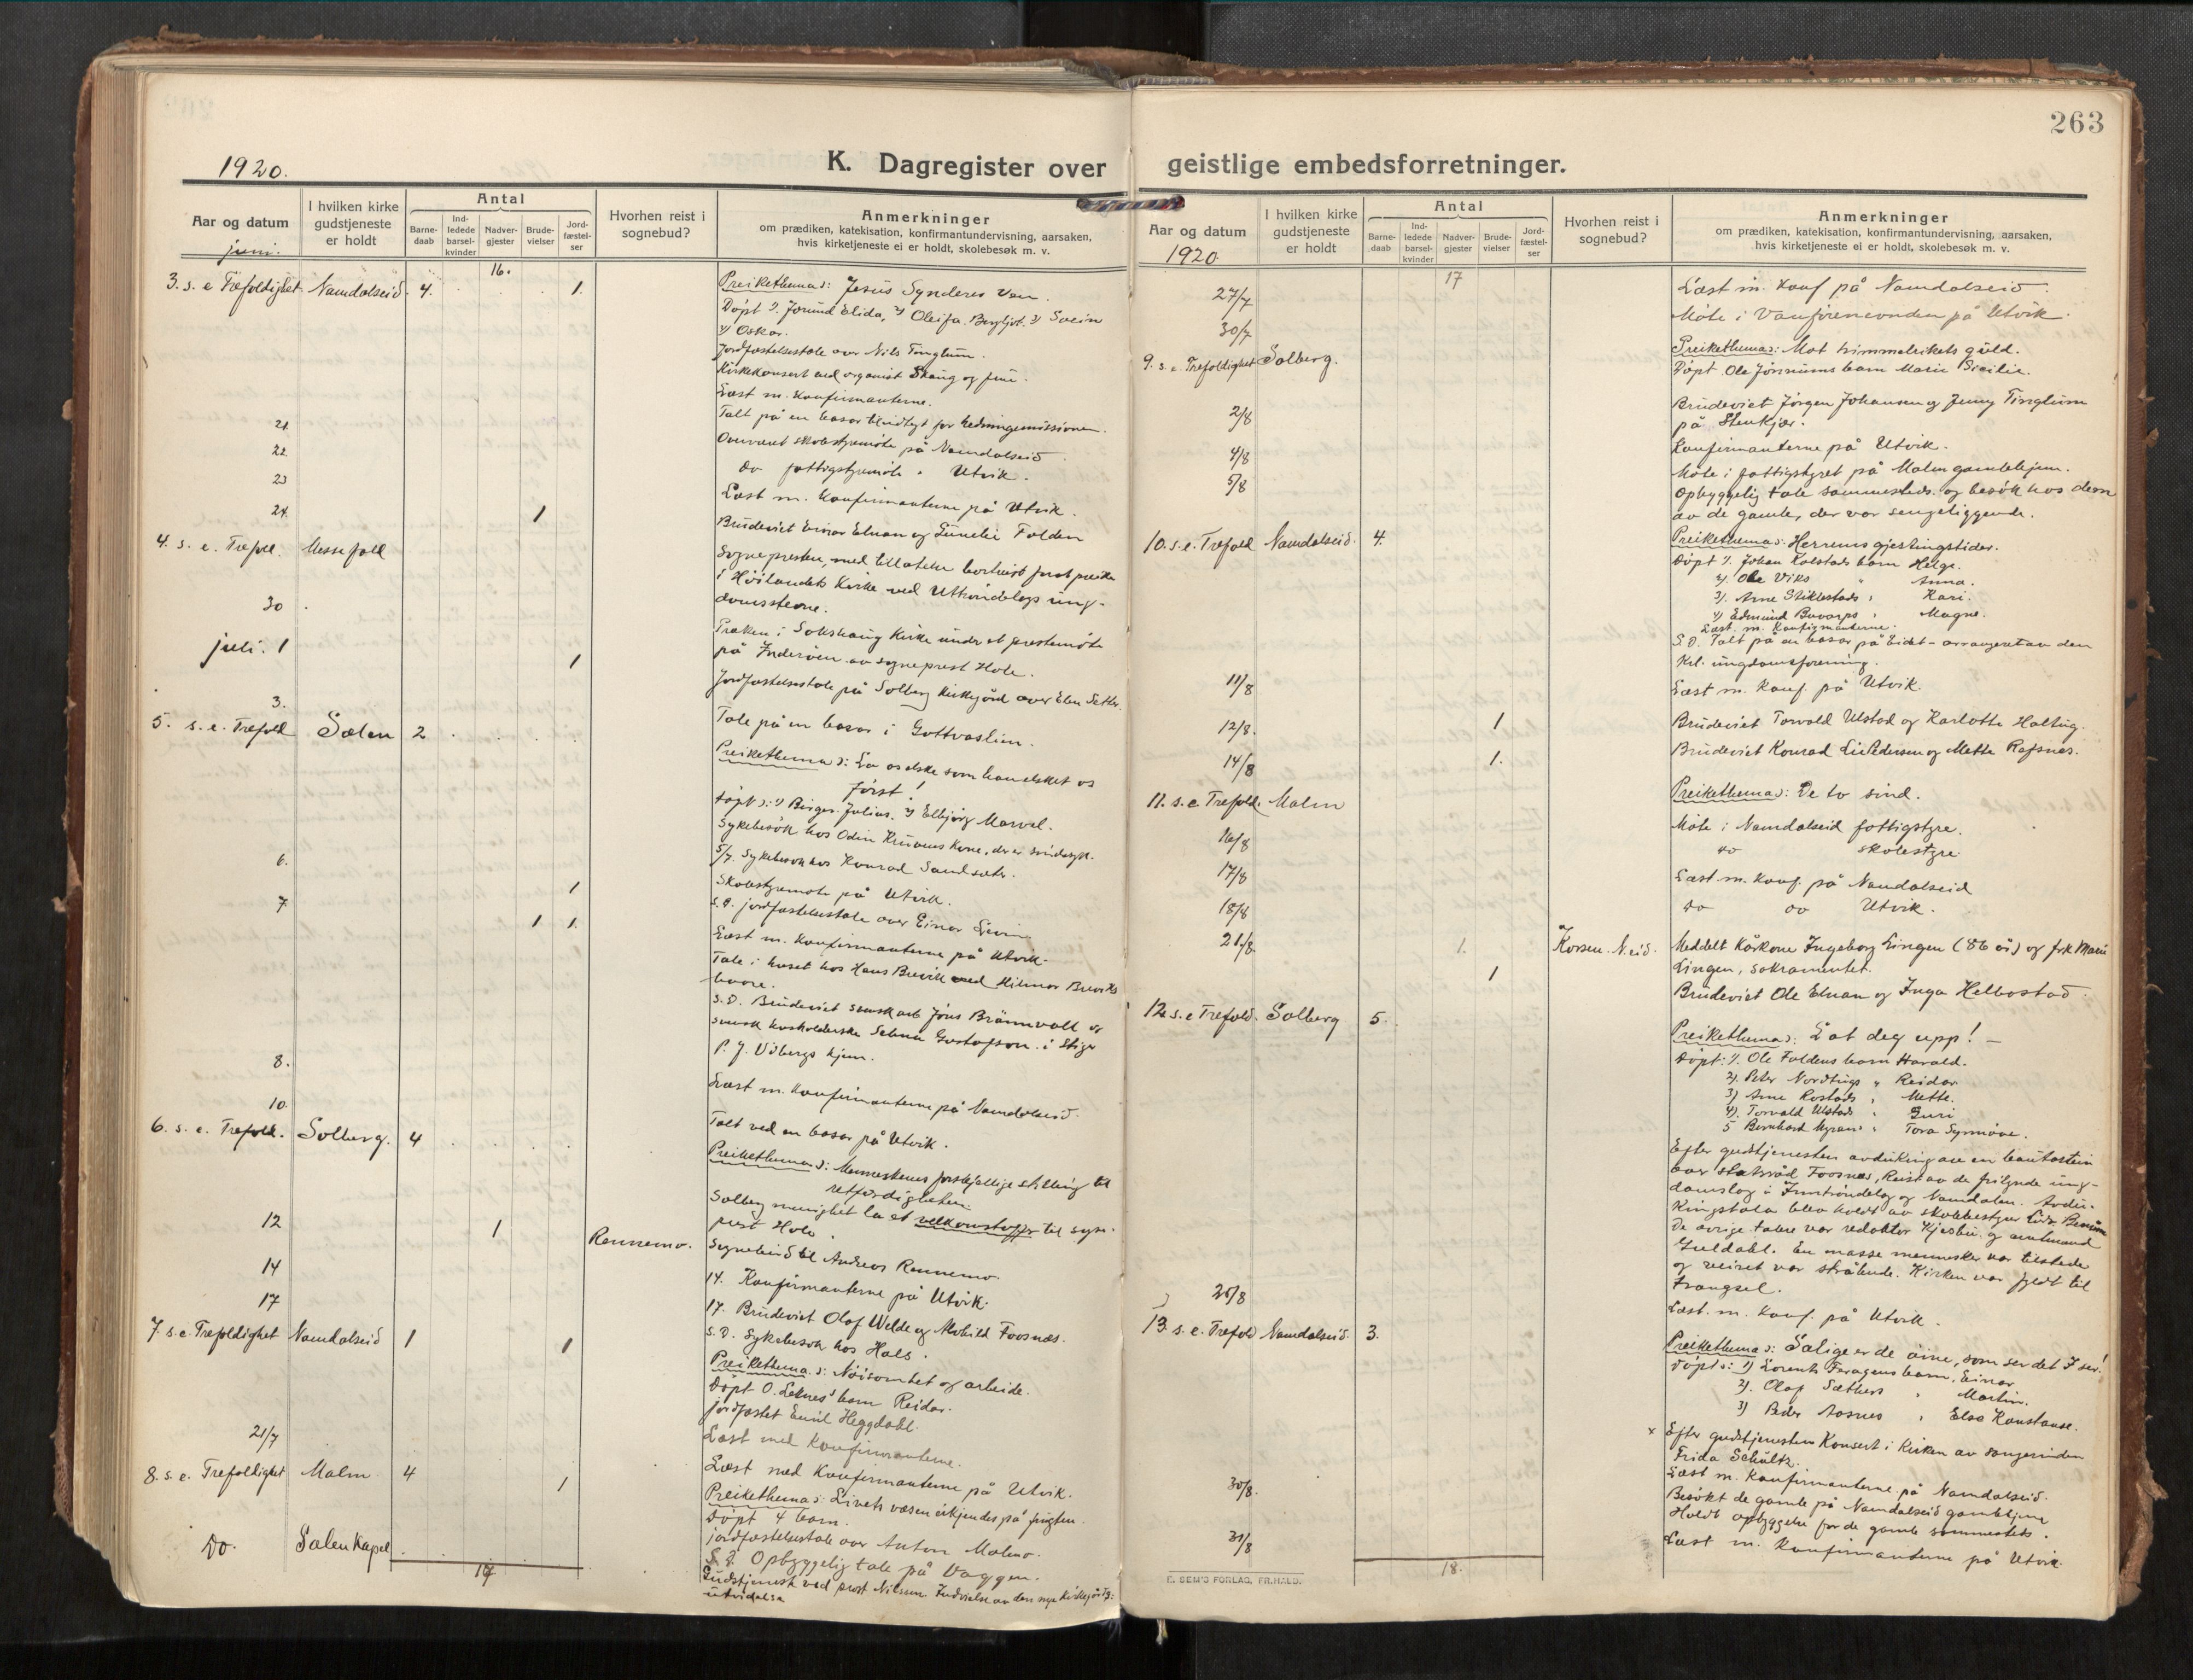 263
1920.
K. Dagregister over geistlige embedsforretninger.
Aar og datum
I hvilken kirke gudstjeneste er holdt
Antal
Barne-daab
Ind-ledede barsel-kvinder
Nadver-gjester
Brude-vielser
Jord-fæstel-ser
Hvorhen reist i sognebud?
Anmerkninger
om prædiken, katekisation, konfirmantundervisning, aarsaken,
hvis kirketjeneste ei er holdt, skolebesøk m. v.
juni.
16.
3. s. e Trefoldighet Namdalseid. 4. 1. Preikethema: Jesus Synderes Ven.
Döpt 1. Jorund Elida, 2) Oleifa Bergljot. 3) Svein
4) Oskar.
Jordfæstelsestale over Nils Tinglum.
Kirkekonsert ved organist Skaug og frue.
Læst m. Konfirmanterne.
21. Talt på en basar til indtegt for hedningemissionen.
22. Overværet skolestyremöte på Namdalseid
23 do fattigstyremöte " Utvik.
24. 1 Læst m. Konfirmanterne på Utvik.
Brudeviet Einar Elnan og Folden
4. s. e. Trefold. Messefald Sognepresten, med tillatelse preike
i Höilandets Kirke ved Uttröndelags ung-
domsstevne.
30
juli. 1 Præken i Sakshaug Kirke under et prestemöte
på Inderöen av sogneprest Hole.
1 Jordfæstelsestale på Solberg Kirkegård over Elen
3. Tale på en basar i
5. s. e. Trefold Sælen 2 Preikethema: La os elske som han elsket os
först!
Döpt: 1) Birger Julius. 2) Elbjörg Marvel.
Sykebesök hos Odin Kone, der er
5/7. Sykebesök hos Konrad
6. Skolestyremöte på Utvik.
1 S. D. jordfæstelsestale over Einar
7. 1 1. Læst m. Konfirmanterne på Utvik.
Tale i huset hos Hans Brevik ved Hilmar Breviks
baare.
S. D. Brudeviet svensk arb. Jöns Brännvall og
svensk husholderske Selma Gustafson i Stiger
P. J. Vibergs hjem.
8. Læst m. Konfirmanterne på Namdalseid.
10. Talt ved en basar på Utvik.
6. s. e. Trefold. Solberg. 4 Preikethema: Menneskenes forskjellige stilling til
retfærdigheten.
Solberg menighet la et velkomstoffer til sogne-
prest Hole.
12 1 Rennemo. Sognebud til Andreas Rennemo.
14 14. Konfirmanterne på Utvik.
17 17. Brudeviet Olaf Welde og Alvhild Foosnæs.
S. D. Sykebesök hos Hals.
7. s. e. Trefoldighet Namdalseid 1 1 Preikethema: Nöisomhet og arbeide.
Döpt O. Leknes' barn Reidar.
jordfæstet Emil Heggdahl.
Læst med Konfirmanterne.
21/7 Læst med Konfirmanterne på Utvik.
8. s. e. Trefoldighet Malm. 4 1 Preikethema: Livets væsen erkjendes på frugten.
Döpt 4 barn.
jordfæstelsestale over Anton Malmo.
S. D. Opbyggelig tale på Vaggen.
Do. Sælen Kapel. Gudstjeneste ved prost Nilssen. Indvielse av den nye kirkegårds-
utvidelse
17
Aar og datum
I hvilken kirke gudstjeneste er holdt
Antal
Barne-daab
Ind-ledede barsel-kvinder
Nadver-gjester
Brude-vielser
Jord-fæstel-ser
Hvorhen reist i sognebud?
Anmerkninger
om prædiken, katekisation, konfirmantundervisning, aarsaken,
hvis kirketjeneste ei er holdt, skolebesøk m. v.
1920
17
27/7 Læst m. Konf på Namdalseid.
30/7 Möte i Vanförenevnden på Utvik.
9. s. e. Trefoldighet Solberg. Preikethema: Mot himmelrikets guld.
Döpt Ole Jörnnums barn Marie Sicilie.
2/8 Brudeviet Jörgen Johansen og Jenny Tinglum
på Stenkjær.
4/8 Konfirmanterne på Utvik.
5/8 Möte i fattigstyret på Malm gamlehjem.
Opbyggelig tale sammesteds og besök hos dem
av de gamle, der var sengeliggende.
10. s. e. Trefold Namdalseid. 4. Preikethema: Herrens gjestingstider.
Döpt 1. Johan Kolstads barn Helge.
2). Ole Viks " Anna.
3). Arne Stiklestads " Kari.
4) Edmund Bovarps " Magne.
Læst m. Konfirmanterne.
S. D. Talt på en basar på Eidet - arrangeret av den
Krl. ungdomsforening.
11/8 Læst m. Konf. på Utvik.
12/8. 1 Brudeviet Torvald Ulstad og Karlotte Holtug.
14/8 1. Brudeviet Konrad Lie Pedersen og Mette Rafsnes.
11. s. e Trefold. Malm Preikethema: De to sind.
16/8 Möte i Namdalseid fattigstyre.
17/8 do skolestyre
18/8 Læst m. Konf. på Namdalseid
do do Utvik.
21/8. 1. Korsen N.eid. Meddelt Kårkone Ingeborg Lingen (86 år) og frk Marie
Lingen, sakramentet.
1 Brudeviet Ole Elnan og Inga Helbostad.
12. s. e Trefold. Solberg 5. Preikethema: Lat deg upp! —
Döpt: 1. Ole Foldens barn Harald.
2). Peter Nordtugs " Reidar
3) Arne Rostads " Mette.
4). Torvald Ulstads " Guri
5 Bernhard Myrans " Tora Synnöve.
Efter gudstjenesten avduking av en bautastein
over statsråd Foosnæs, Reist av de frilynde ung-
domslag i Inntröndelag og Namdalen. Avdu-
kingstalen blev holdt av skolebestyrer
De övrige talere var redaktör Kjesbu og amtmand
Guldahl. En masse mennesker var tilstede
og veiret var strålende. Kirken var fyldt til
trængsel.
25/8 Læst. m. Konf. på Utvik.
13. s. e. Trefold Namdalseid. 3. Preikethema: Salige er de öine, som ser det I ser!
Döpt: 1) Lorents barn, Einar
2). Olaf Sæthers " Martin.
3) Peder Aasnes " Elsa Konstanse.
x Efter gudstjenesten Konsert i Kirken av sangerinden
Frida Schültz.
30/8. Læst m. Konfirmanterne på Namdalseid.
Besökt de gamle på Namdalseid gamlehjem
Holdt opbyggelse for de gamle sammesteds.
31/8 Læst m. Konfirmanterne på Utvik.
18.
E. SEM'S FORLAG, FR.HALD.